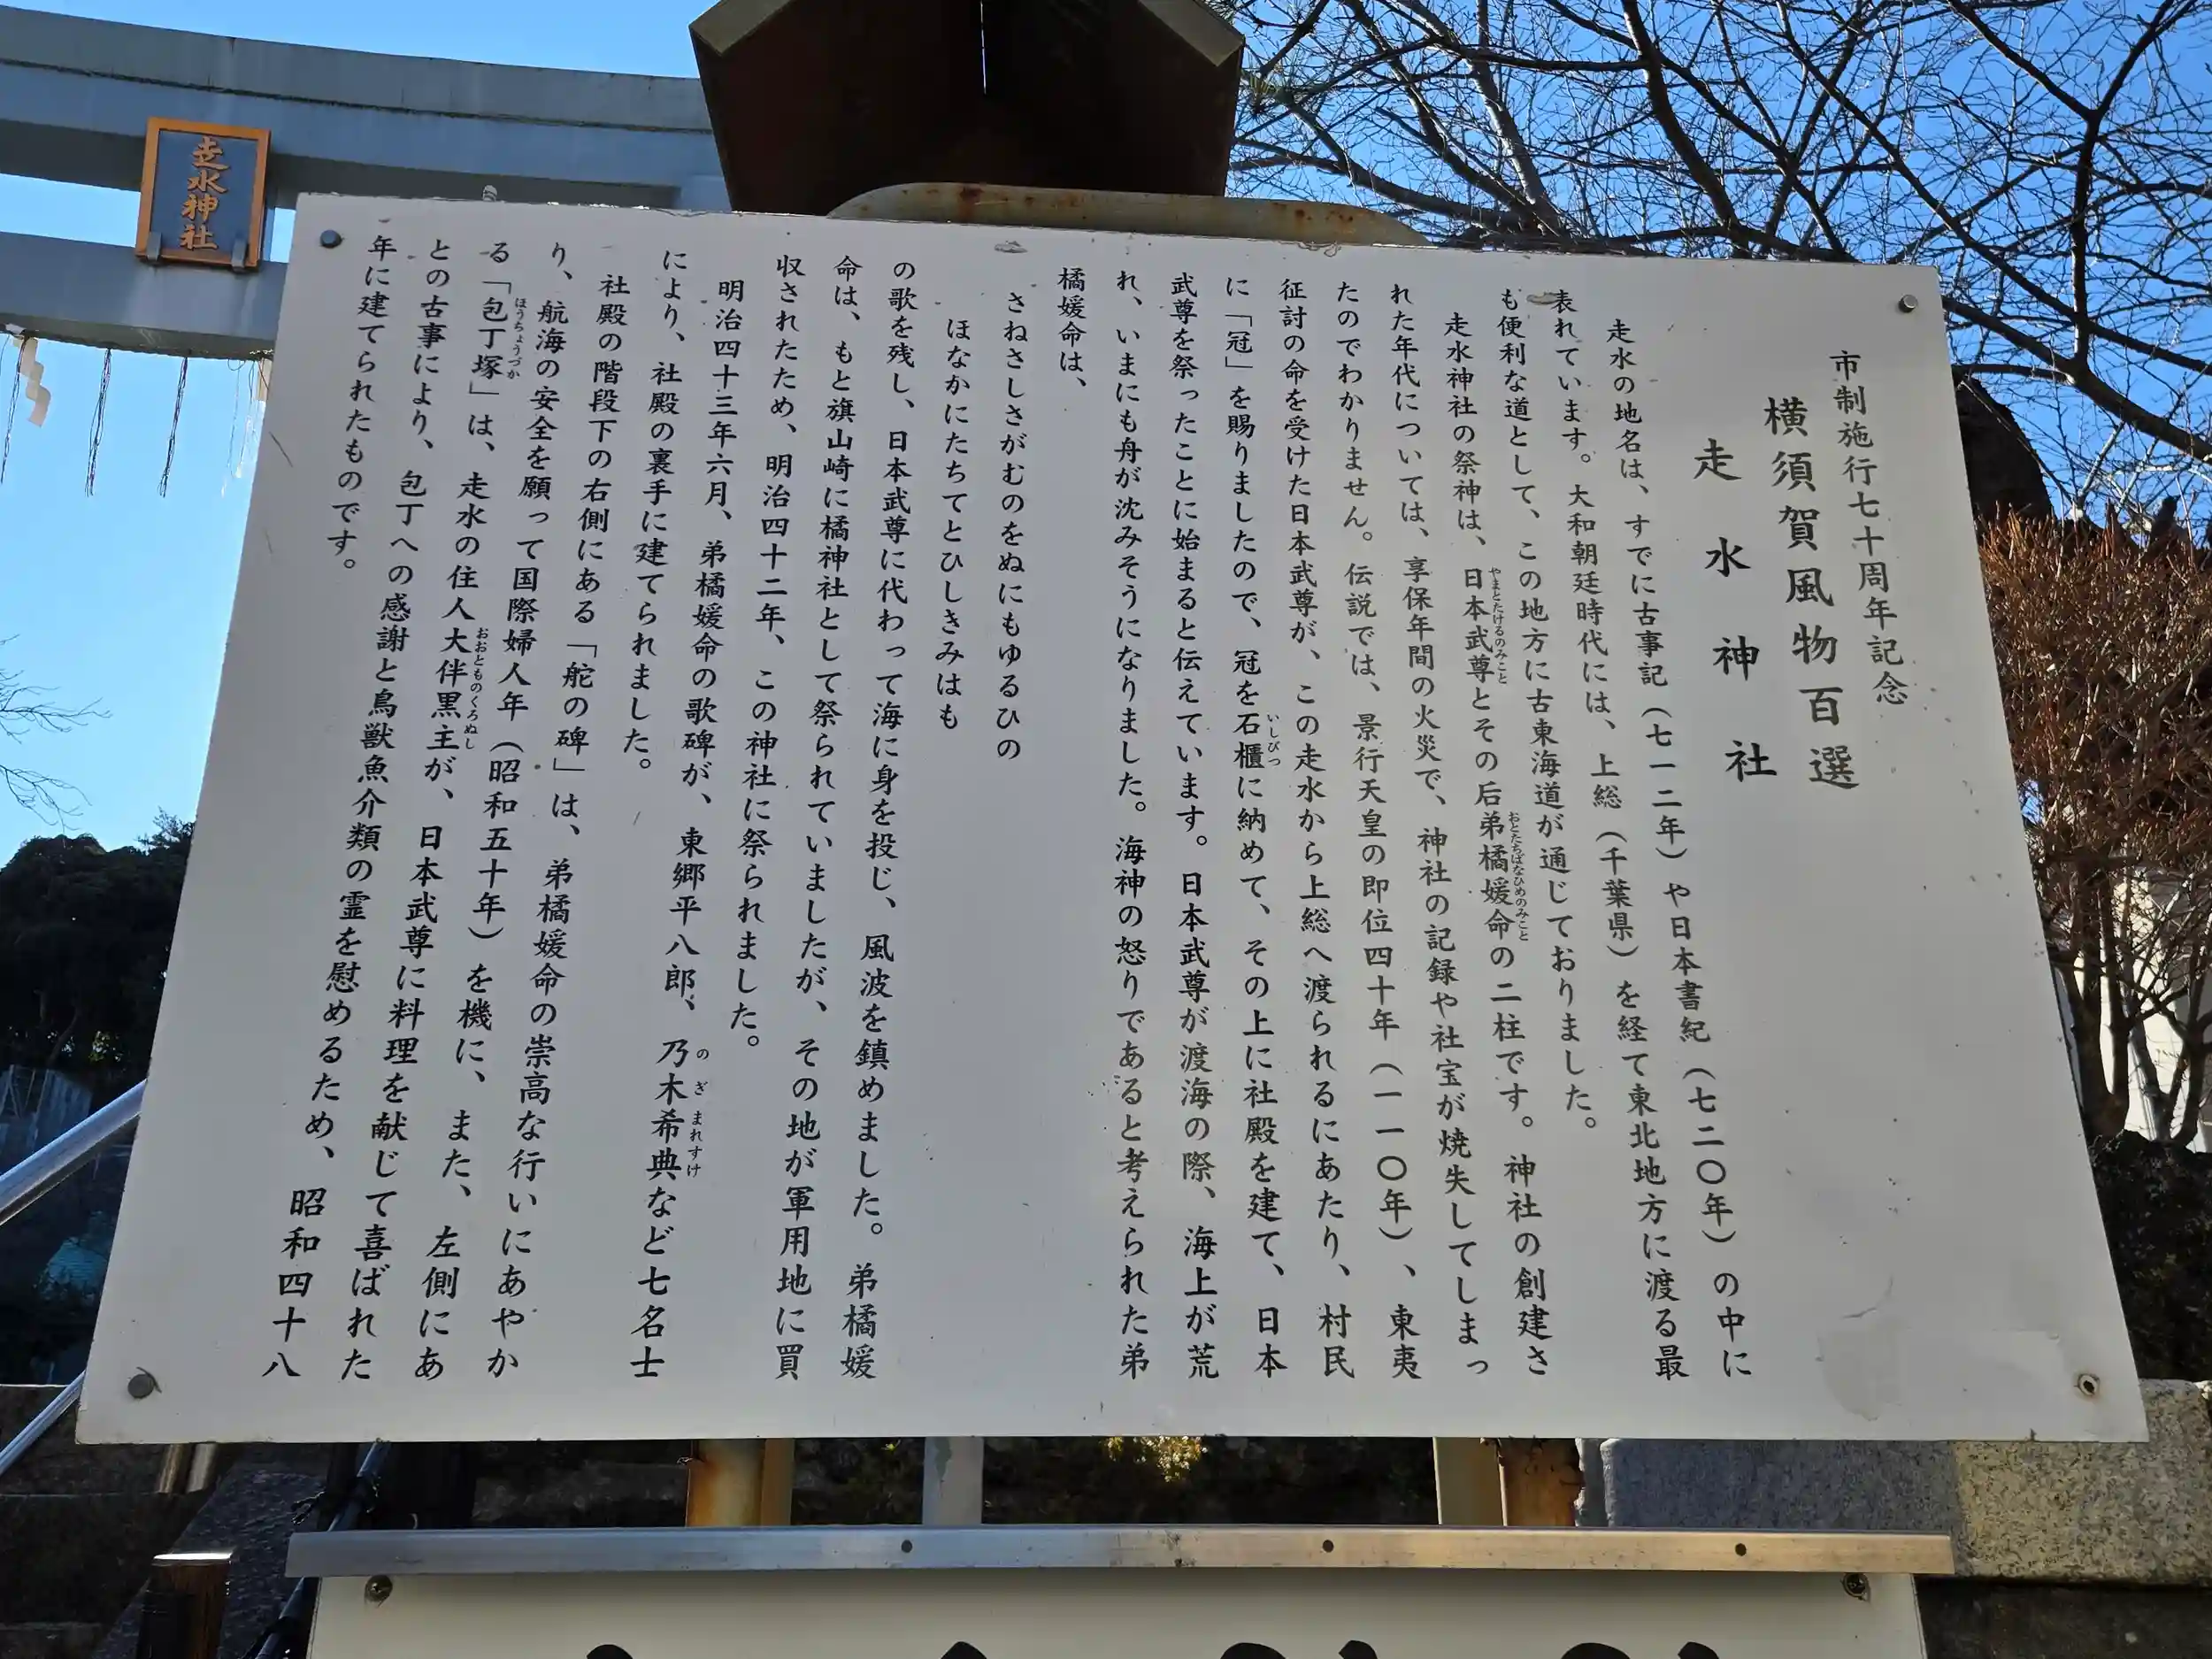 市制施行七十周年記念
横須賀風物百選
走水神社
走水の地名は、すでに古事記(七一二年)や日本書紀(七二〇年)の中に
表れています。大和朝廷時代には、上総(千葉県)を経て東北地方に渡る最
も便利な道として、この地方に古東海道が通じておりました。
走水神社の祭神は、日本武尊とその后弟橘媛命の二柱です。神社の創建さ
やまとたけるのみこと
おとたちばなひめのみこと
れた年代については、享保年間の火災で、神社の記録や社宝が焼失してしまっ
たのでわかりません。伝説では、景行天皇の即位四十年(一一〇年)、東夷
征討の命を受けた日本武尊が、この走水から上総へ渡られるにあたり、村民
に「冠」を賜りましたので、冠を石櫃に納めて、その上に社殿を建て、日本
いしびつ
武尊を祭ったことに始まると伝えています。日本武尊が渡海の際、海上が荒
れ、いまにも舟が沈みそうになりました。海神の怒りであると考えられた弟
橘媛命は、
さねさしさがむのをぬにもゆるひの
ほなかにたちてとひしきみはも
の歌を残し、日本武尊に代わって海に身を投じ、風波を鎮めました。弟橘媛
命は、もと旗山崎に橘神社として祭られていましたが、その地が軍用地に買
収されたため、明治四十二年、この神社に祭られました。
明治四十三年六月、弟橘媛命の歌碑が、東郷平八郎、乃木希典など七名士
のぎまれすけ
により、社殿の裏手に建てられました。
社殿の階段下の右側にある「舵の碑」は、弟橘媛命の崇高な行いにあやか
り、航海の安全を願って国際婦人年(昭和五十年)を機に、また、左側にあ
る「包丁塚」は、走水の住人大伴黒主が、日本武尊に料理を献じて喜ばれた
ほうちょうづか
おおとものくろぬし
との古事により、包丁への感謝と鳥獣魚介類の霊を慰めるため、昭和四十八
年に建てられたものです。
走水神社